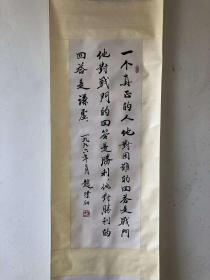 一个真正的人他對困难的回答是戰鬥
他對戰鬥的回答是勝利，他對勝利的
回答是谦虚
一九九六年 月 趙